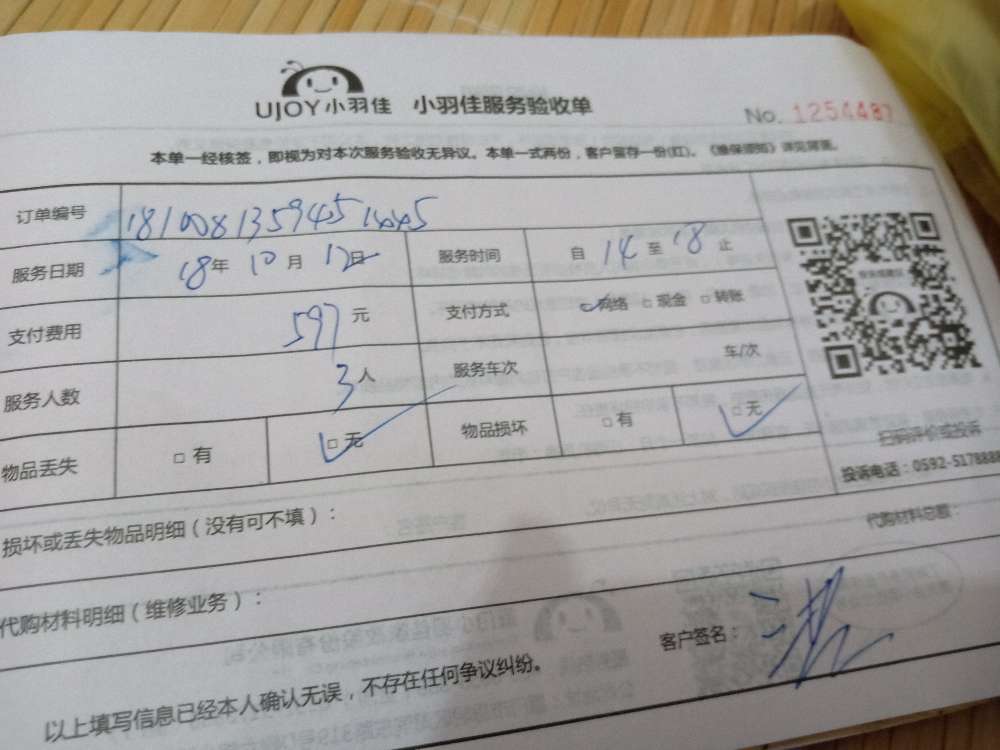 UJOY小羽佳 小羽佳服务验收单 No. 1254487
本单一经核签，即视为对本次服务验收无异议。本单一式两份，客户留存一份(红)。《维保须知》详见背面。
订单编号
服务日期 18年 10月 12日 服务时间 自 14 至 18 止
支付费用 597 元 支付方式 网络 □ 现金 □ 转账
服务人数 3人 服务车次 车/次
物品丢失 □ 有 □ 无 物品损坏 □ 有 □ 无
扫码评价或投诉
投诉电话：0592-5178888
损坏或丢失物品明细（没有可不填）：
代购材料总额：
代购材料明细（维修业务）：
客户签名：
以上填写信息已经本人确认无误，不存在任何争议纠纷。